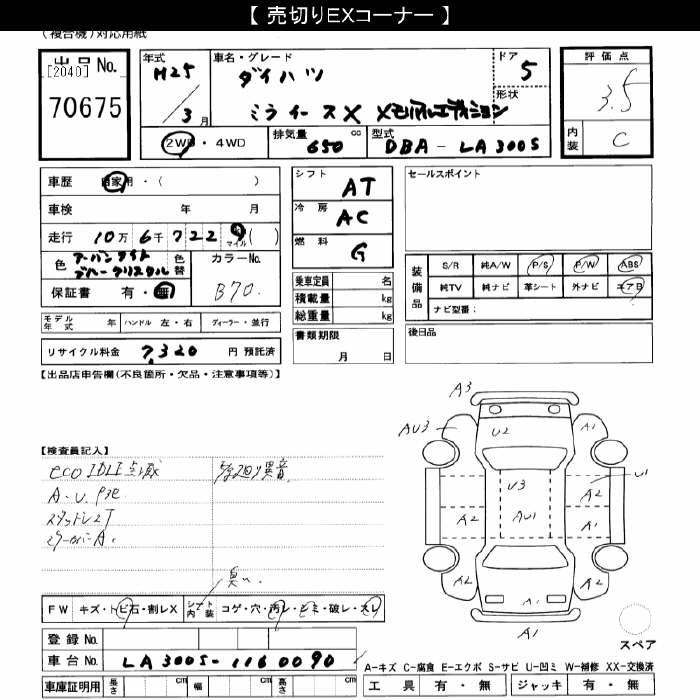 【 売切りEXコーナー 】
(複合機)対応用紙
出品 No.
[2040]
70675
年式
H25
/
3 月
車名・グレード
ダイハツ
ミライース X メモリアルエディション
ドア
5
形状
2WD ・ 4WD
排気量
650 cc
型式
DBA - LA300S
評価点
3.5
内装
C
車歴 自家用 ・ ( )
車検 年 月
走行 10万 6千 722 マイル ( )
色 アーバンナイト ブルークリスタル 色替
カラーNo.
B70.
保証書 有・無
モデル年式 年 ハンドル 左・右 ディーラー・並行
リサイクル料金 7,320 円 預託済
シフト
AT
冷房
AC
燃料
G
乗車定員 名
積載量 kg
総重量 kg
書類期限
月 日
セールスポイント
装備品
S/R 純A/W P/S P/W ABS
純TV 純ナビ 革シート 外ナビ エアB
ナビ型番:
後日品
【出品店申告欄(不良箇所・欠品・注意事項等)】
【検査員記入】
eco IDLE点滅
異音
A・U
A.
臭い
A3
AU3
U2
A1
U3
AU1
A2
U1
A2
A1
A2
A2
A1
A1
FW キズ・トビ石・割レX
シート内装 コゲ・穴・汚レ・シミ・破レ・スレ
登録 No.
車台 No. LA300S-1160090
車庫証明用 長さ cm 幅 cm 高さ cm
スペア
A−キズ C−腐食 E−エクボ S−サビ U−凹ミ W−補修 XX−交換済
工具 有・無 ジャッキ 有・無